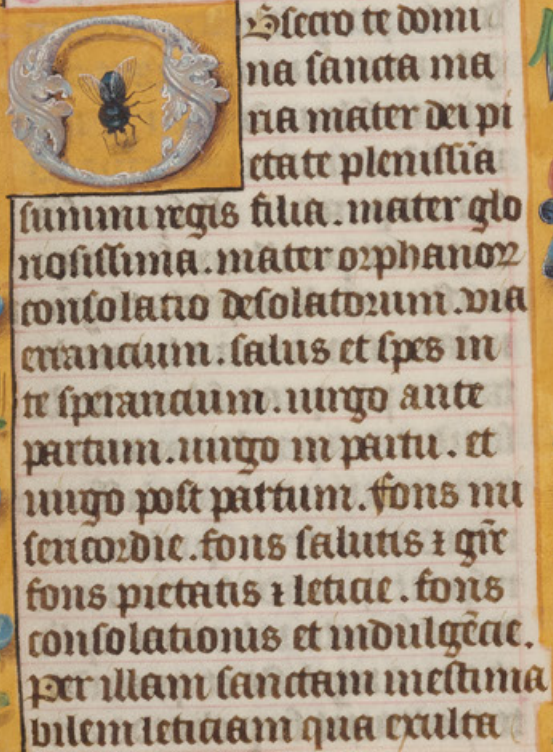 Obsecro te domi
na sancta ma
ria mater dei pi
etate plenissīa
summi regis filia. mater glo
riosissima. mater orphanoꝝ
consolatio desolatorum. via
errancium. salus et spes in
te sperancium. uirgo ante
partum. uirgo in partu. et
uirgo post partum. fons mi
sericordie. fons salutis ⁊ grē
fons pietatis ⁊ leticie. fons
consolationis et indulgēcie.
Per illam sanctam inestima
bilem leticiam qua exulta